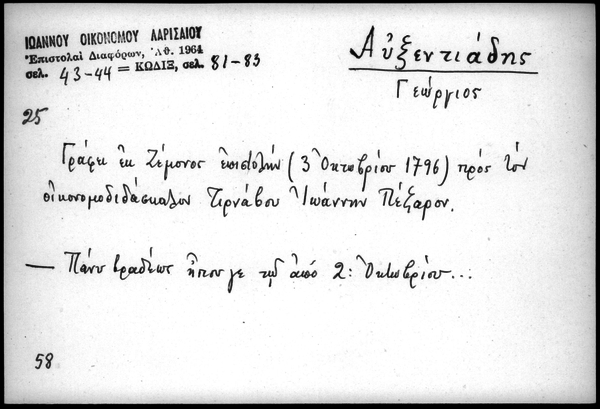 ΙΩΑΝΝΟΥ ΟΙΚΟΝΟΜΟΥ ΛΑΡΙΣΑΙΟΥ
Ἐπιστολαὶ Διαφόρων, Ἀθ. 1964
σελ. 43-44 = ΚΩΔΙΞ, σελ. 81-83
Αὐξεντιάδης
Γεώργιος
25
Γράφει ἐκ Ζέμονος ἐπιστολὴν (3 Ὀκτωβρίου 1796) πρὸς τὸν
οἰκονομοδιδάσκαλον Τιρνάβου Ἰωάννην Πέζαρον.
— Πάνυ βραδέως ἥπου γε τῇ ἀπό 2: Ὀκτωβρίου...
58